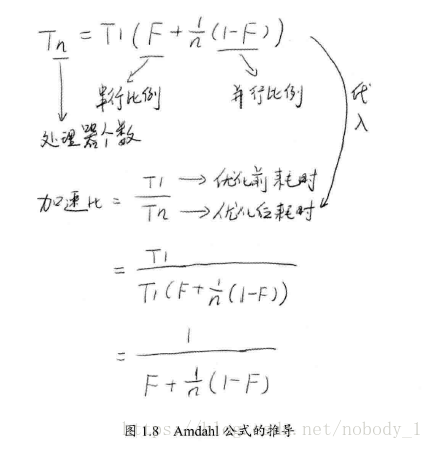 Tn = T1 (F + 1/n (1-F))
串行比例 并行比例 代入
处理器个数
加速比 = T1/Tn → 优化前耗时 → 优化后耗时
= T1 / T1(F + 1/n (1-F))
= 1 / F + 1/n (1-F)
图 1.8 Amdahl 公式的推导